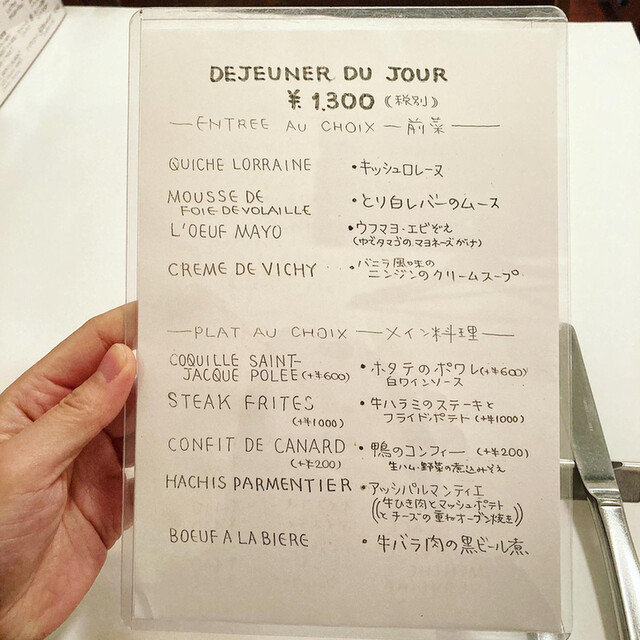 DEJEUNER DU JOUR
¥ 1,300 (税別)
ENTREE AU CHOIX 前菜
QUICHE LORRAINE ・キッシュロレーヌ
MOUSSE DE ・とり白レバーのムース
FOIE DE VOLAILLE
L'OEUF MAYO ・ウフマヨ・エビぞえ
(ゆでタマゴのマヨネーズがけ)
CREME DE VICHY ・バニラ風味の
ニンジンのクリームスープ
PLAT AU CHOIX メイン料理
COQUILLE SAINT- ・ホタテのポワレ(+¥600)
JACQUE POLEE (+¥600) 白ワインソース
STEAK FRITES ・牛ハラミのステーキと
(+¥1000) フライドポテト (+¥1000)
CONFIT DE CANARD ・鴨のコンフィー (+¥200)
(+¥200) 生ハム・野菜の煮込みぞえ
HACHIS PARMENTIER ・アッシパルマンティエ
(牛ひき肉とマッシュポテト
とチーズの重ねオーブン焼き)
BOEUF A LA BIERE ・牛バラ肉の黒ビール煮、